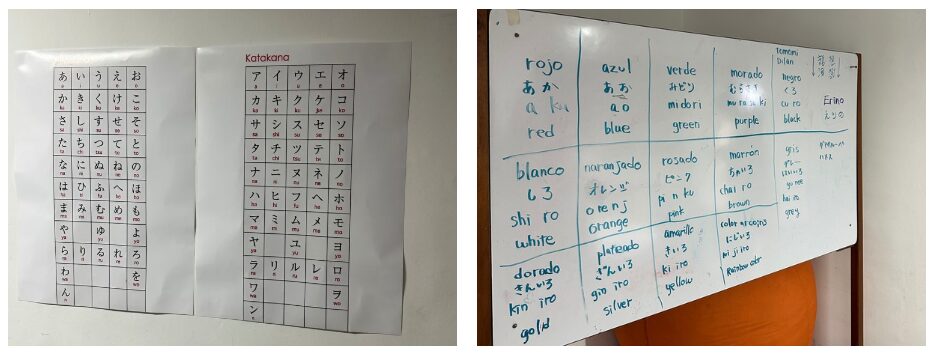 あ い う え お
a i u e o
か き く け こ
ka ki ku ke ko
さ し す せ そ
sa shi su se so
た ち つ て と
ta chi tsu te to
な に ぬ ね の
na ni nu ne no
は ひ ふ へ ほ
ha hi fu he ho
ま み む め も
ma mi mu me mo
や ゆ よ
ya yu yo
ら り る れ ろ
ra ri ru re ro
わ を
wa o
ん
n
Katakana
ア イ ウ エ オ
a i u e o
カ キ ク ケ コ
ka ki ku ke ko
サ シ ス セ ソ
sa shi su se so
タ チ ツ テ ト
ta chi tsu te to
ナ ニ ヌ ネ ノ
na ni nu ne no
ハ ヒ フ ヘ ホ
ha hi fu he ho
マ ミ ム メ モ
ma mi mu me mo
ヤ ユ ヨ
ya yu yo
ラ リ ル レ ロ
ra ri ru re ro
ワ ヲ
wa o
ン
n
rojo
あか
a ka
red
azul
あお
ao
blue
verde
みどり
midori
green
morado
むらさき
mu ra sa ki
purple
tomomi
Dilan
negro
くろ
cu ro
black
Erino
えりの
blanco
しろ
shi ro
white
naranjado
オレンジ
orenj
orange
rosado
ピンク
pi n ku
pink
marrón
ちゃいろ
chai ro
brown
gris
グレー
はいいろ
hai iro
grey
dorado
きんいろ
kin iro
gold
plateado
ぎんいろ
gin iro
silver
amarillo
きいろ
ki iro
yellow
color arcoiris
にじいろ
ni ji iro
Rainbow color